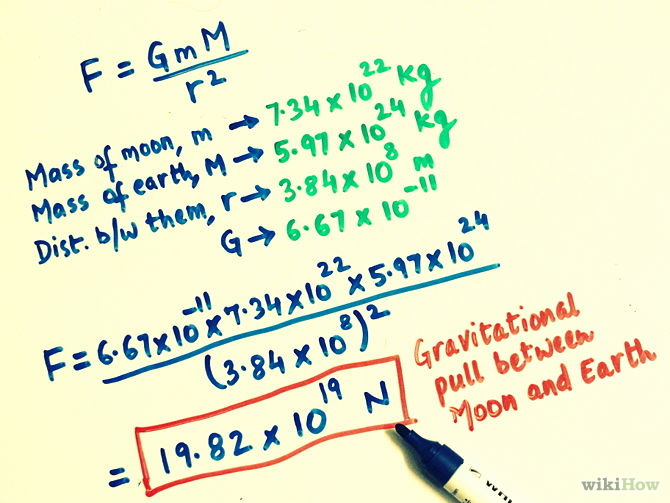 F = GmM
r²
Mass of moon, m → 7.34 x 10²² kg
Mass of earth, M → 5.97 x 10²⁴ kg
Dist. b/w them, r → 3.84 x 10⁸ m
G → 6.67 x 10⁻¹¹
F = 6.67x10⁻¹¹ x 7.34x10²² x 5.97x10²⁴
(3.84 x 10⁸)²
= 19.82 x 10¹⁹ N
Gravitational
pull between
Moon and Earth
wikiHow